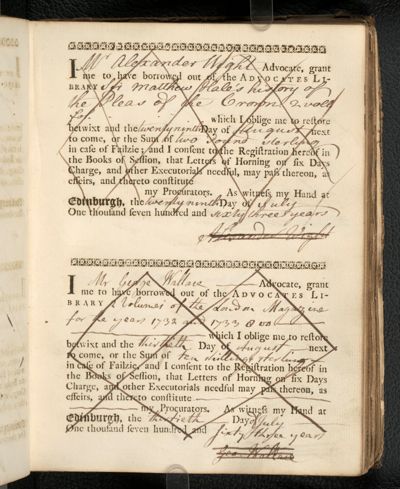 I Mr Alexander Wight Advocate, grant
me to have borrowed out of the ADVOCATES LI-
BRARY Sir Matthew Hale's history of
the Pleas of the Crown 2 voll
fol. which I oblige me to restore
betwixt and the twenty ninth Day of August next
to come, or the Sum of two pound sterling
in case of Failzie; and I consent to the Registration hereof in
the Books of Session, that Letters of Horning on six Days
Charge, and other Executorials needful, may pass thereon, as
effeirs, and thereto constitute
my Procurators. As witness my Hand at
Edinburgh, the twenty ninth Day of July
One thousand seven hundred and sixty three years
Alexander Wight
I Mr George Wallace Advocate, grant
me to have borrowed out of the ADVOCATES LI-
BRARY Volumes of the London Magazine
for the years 1732 and 1733 8vo
which I oblige me to restore
betwixt and the thirtieth Day of August next
to come, or the Sum of ten shillings sterling
in case of Failzie; and I consent to the Registration hereof in
the Books of Session, that Letters of Horning on six Days
Charge, and other Executorials needful may pass thereon, as
effeirs, and thereto constitute
my Procurators. As witness my Hand at
Edinburgh, the thirtieth Day of July
One thousand seven hundred and sixty three years
Geo: Wallace